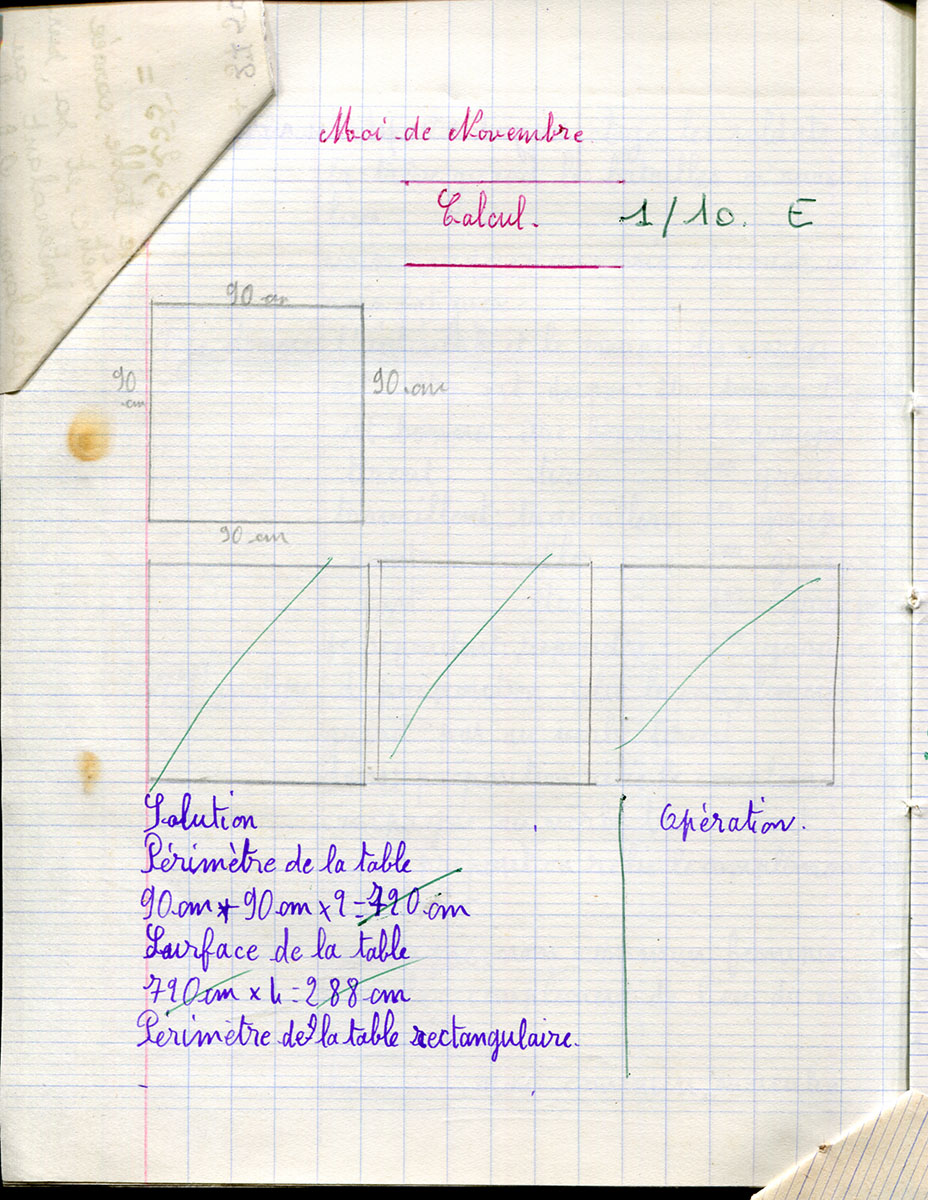 Moi de Novembre
Calcul. 1/10. E
90 cm
90 cm
90 cm
90 cm
Solution
Opération.
Périmètre de la table
90 cm + 90 cm x 2 = 720 cm
Surface de la table
720 cm x 4 = 288 cm
Périmètre de la table rectangulaire.